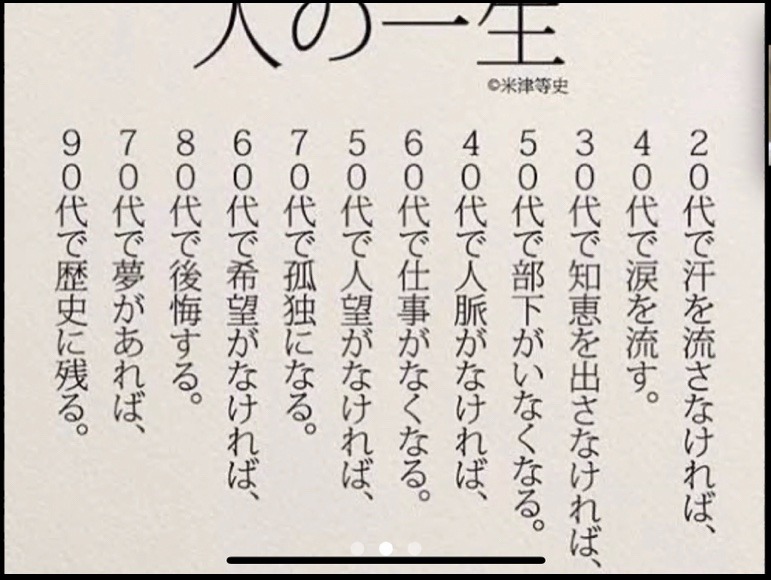 人の一生
©米津等史
20代で汗を流さなければ、
40代で涙を流す。
30代で知恵を出さなければ、
50代で部下がいなくなる。
40代で人脈がなければ、
60代で仕事がなくなる。
50代で人望がなければ、
70代で孤独になる。
60代で希望がなければ、
80代で後悔する。
70代で夢があれば、
90代で歴史に残る。